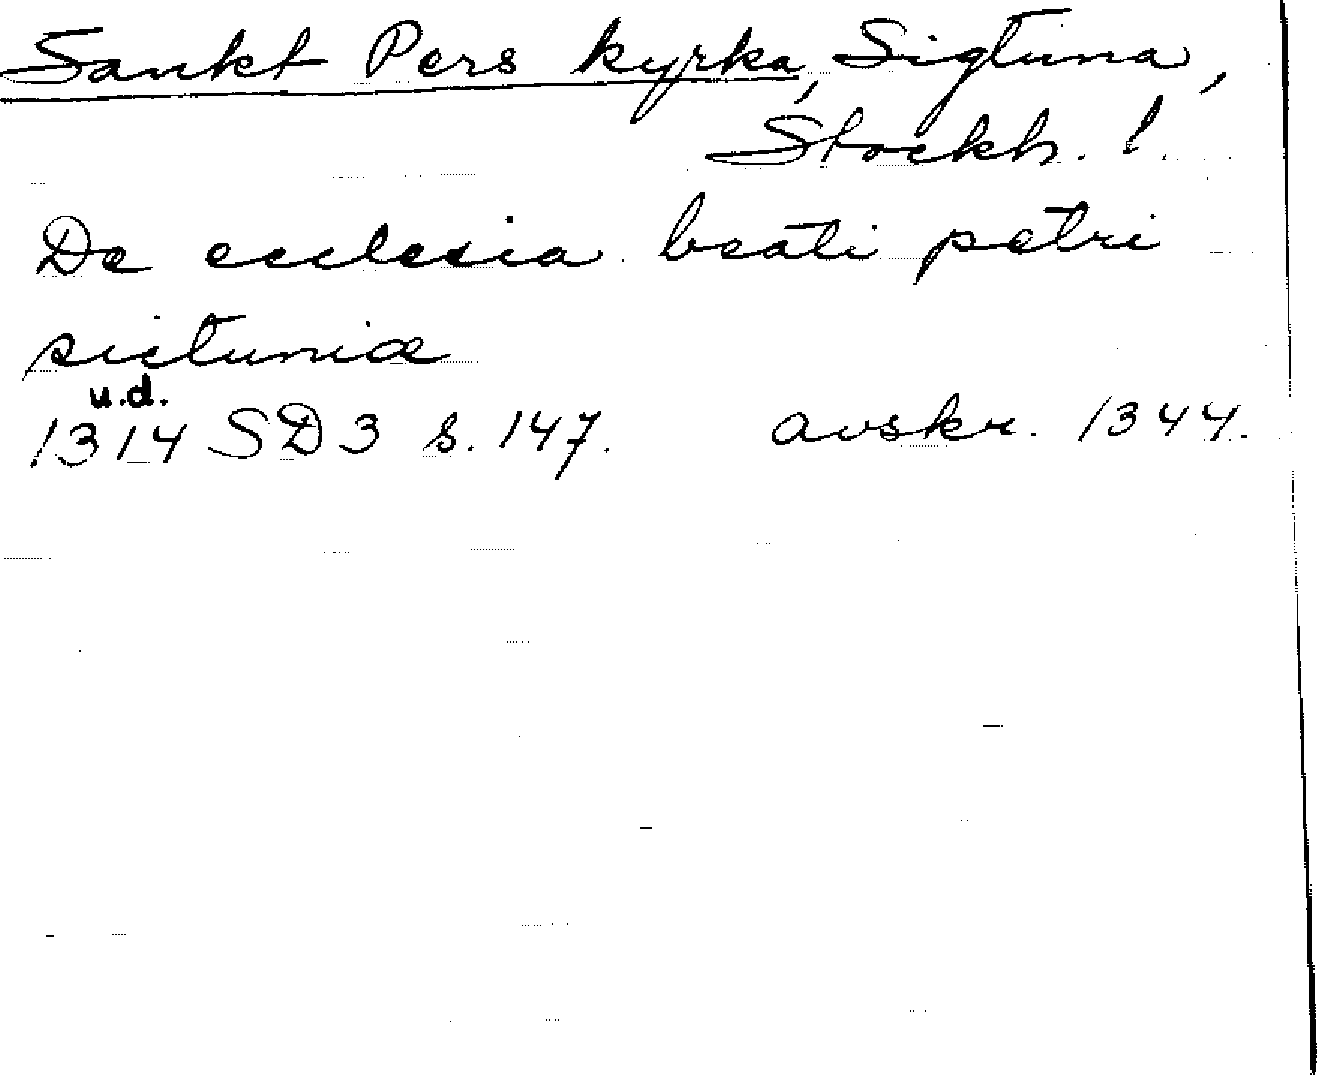 Sankt Pers kyrka, Sigtuna,
Stockh. l.
De ecclesia beati petri
sictuniæ
u.d.
1314 SD 3 s. 147. avskr. 1344.